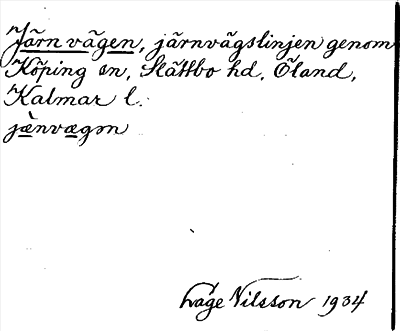 Järnvägen, järnvägslinjen genom
Köping sn, Slättbo hd, Öland,
Kalmar l.
jænvægən
Åge Nilsson 1934